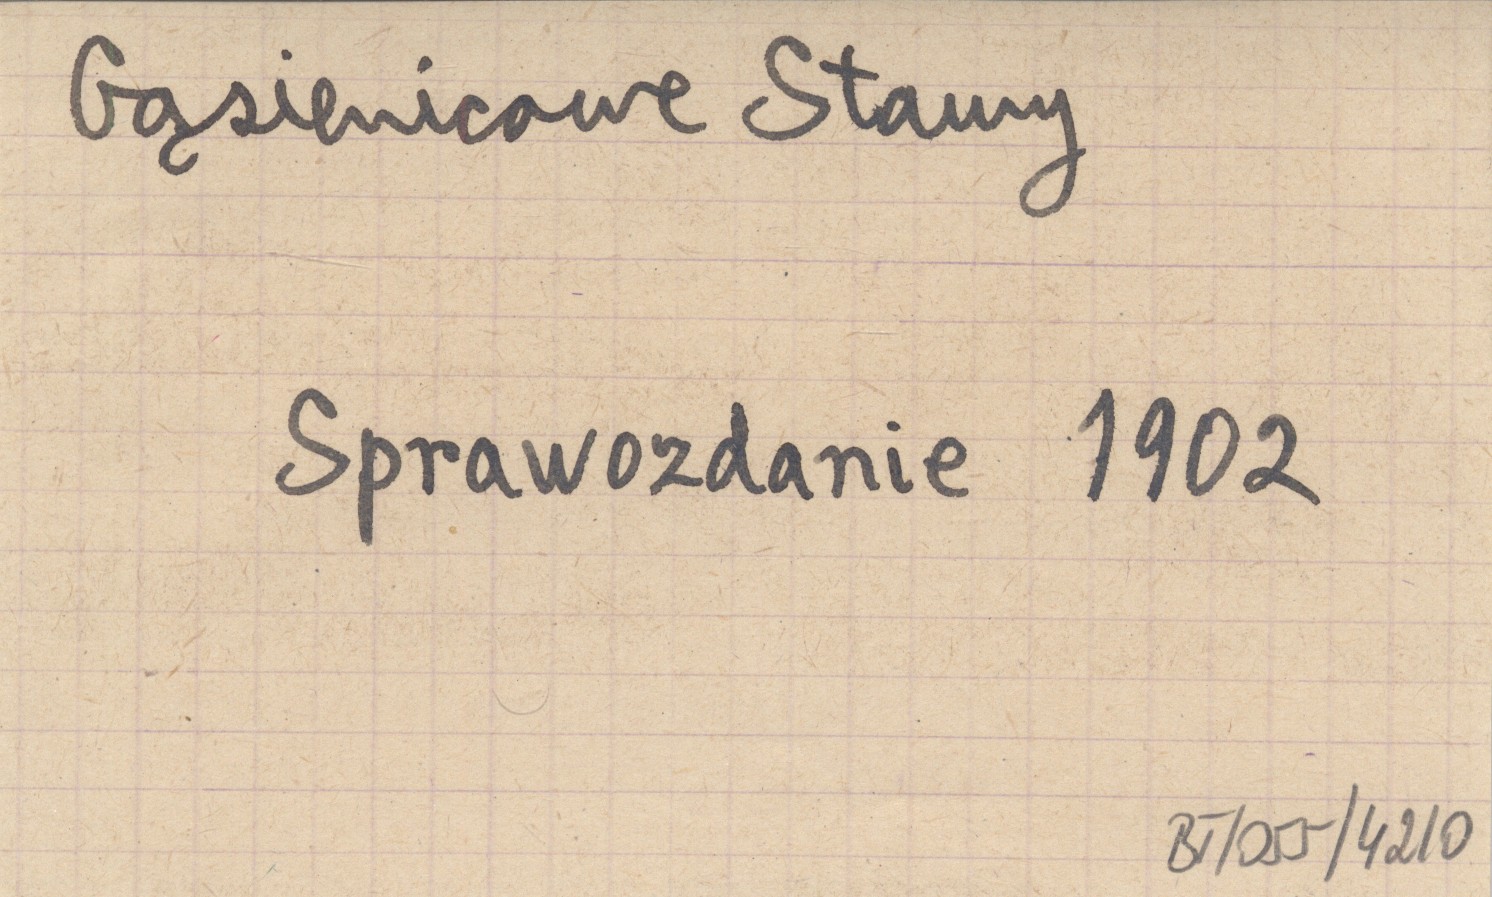 Gąsienicowe Stawy
Sprawozdanie 1902
BT/055/4210